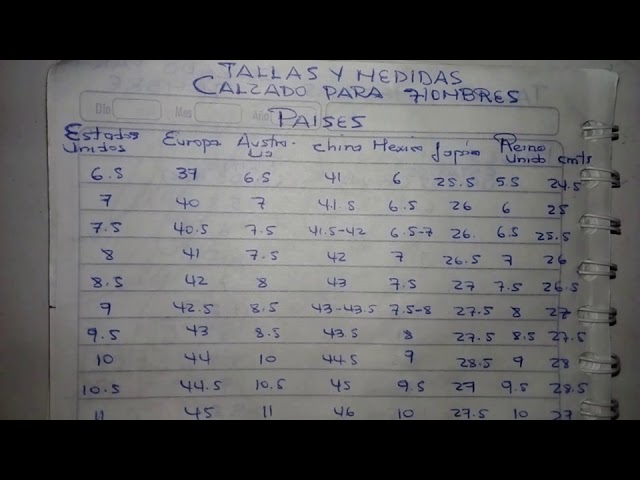 TALLAS Y MEDIDAS
CALZADO PARA HOMBRES
Dia Mes Año
PAISES
Estados Unidos Europa Australia China Mexico Japón Reino Unido cmts
6.5 37 6.5 41 6 25.5 5.5 24.5
7 40 7 41.5 6.5 26 6 25
7.5 40.5 7.5 41.5-42 6.5-7 26. 6.5 25.5
8 41 7.5 42 7 26.5 7 26
8.5 42 8 43 7.5 27 7.5 26.5
9 42.5 8.5 43-43.5 7.5-8 27.5 8 27
9.5 43 8.5 43.5 8 27.5 8.5 27.5
10 44 10 44.5 9 28.5 9 28
10.5 44.5 10.5 45 9.5 29 9.5 28.5
11 45 11 46 10 27.5 10 27